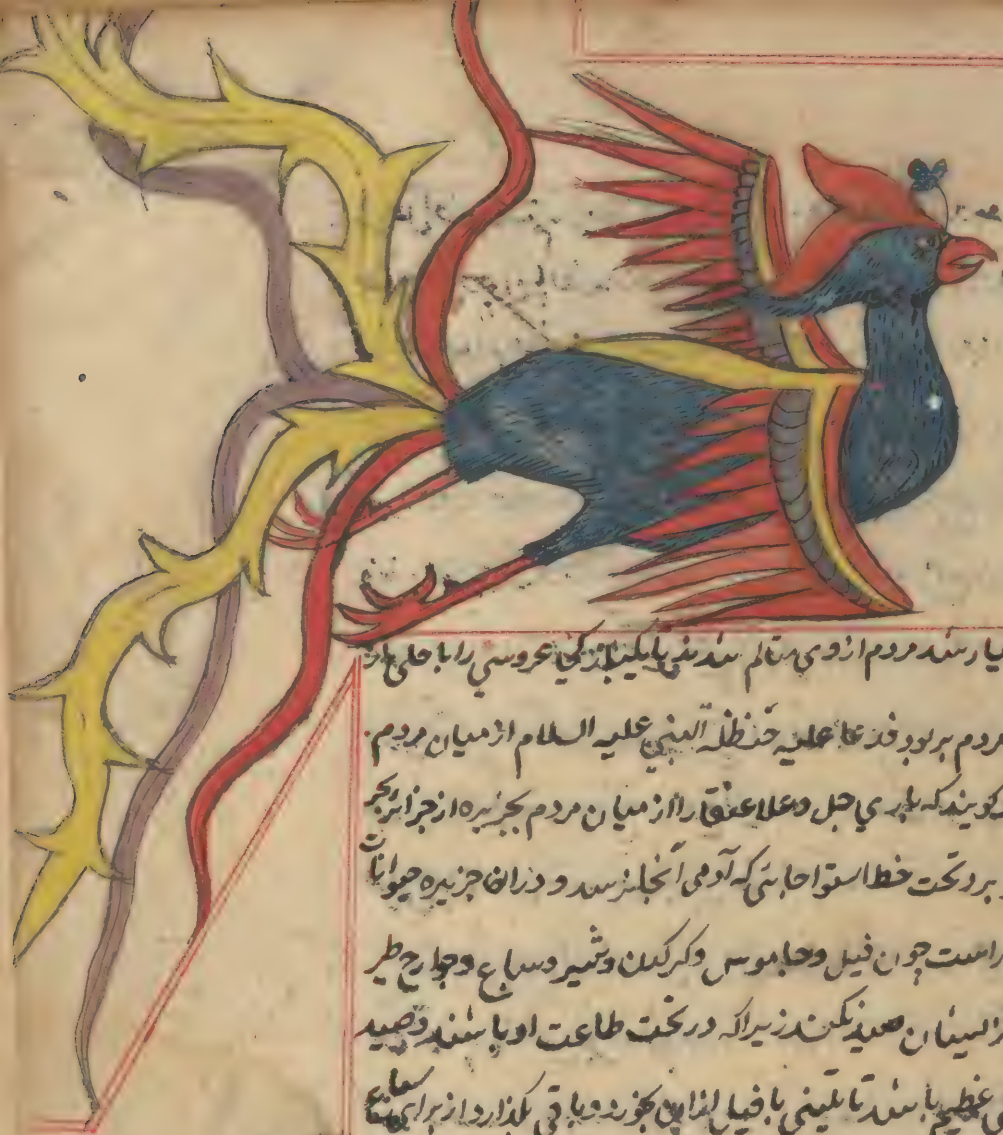 مردم از وی متالم شدند تا یکبار عروسی را با حلی از
مردم بربود فدعا علیه حنظلة النبی علیه السلام از میان مردم
کویند که باری جل وعلا عنقا را از میان مردم بجزیره از جزایر بحر
برد تحت خط استوا جایی که آدمی آنجا نرسد و دران جزیره حیوانات
است چون فیل وجاموس وکرکدن وشیر وسباع وجوارح طیر
ایشان صید نکند زیراکه در تحت طاعت او باشند وصید
عظیم باشد تا تنینی یا فیل ازان بخورد وباقی بگذارد از برای سباع